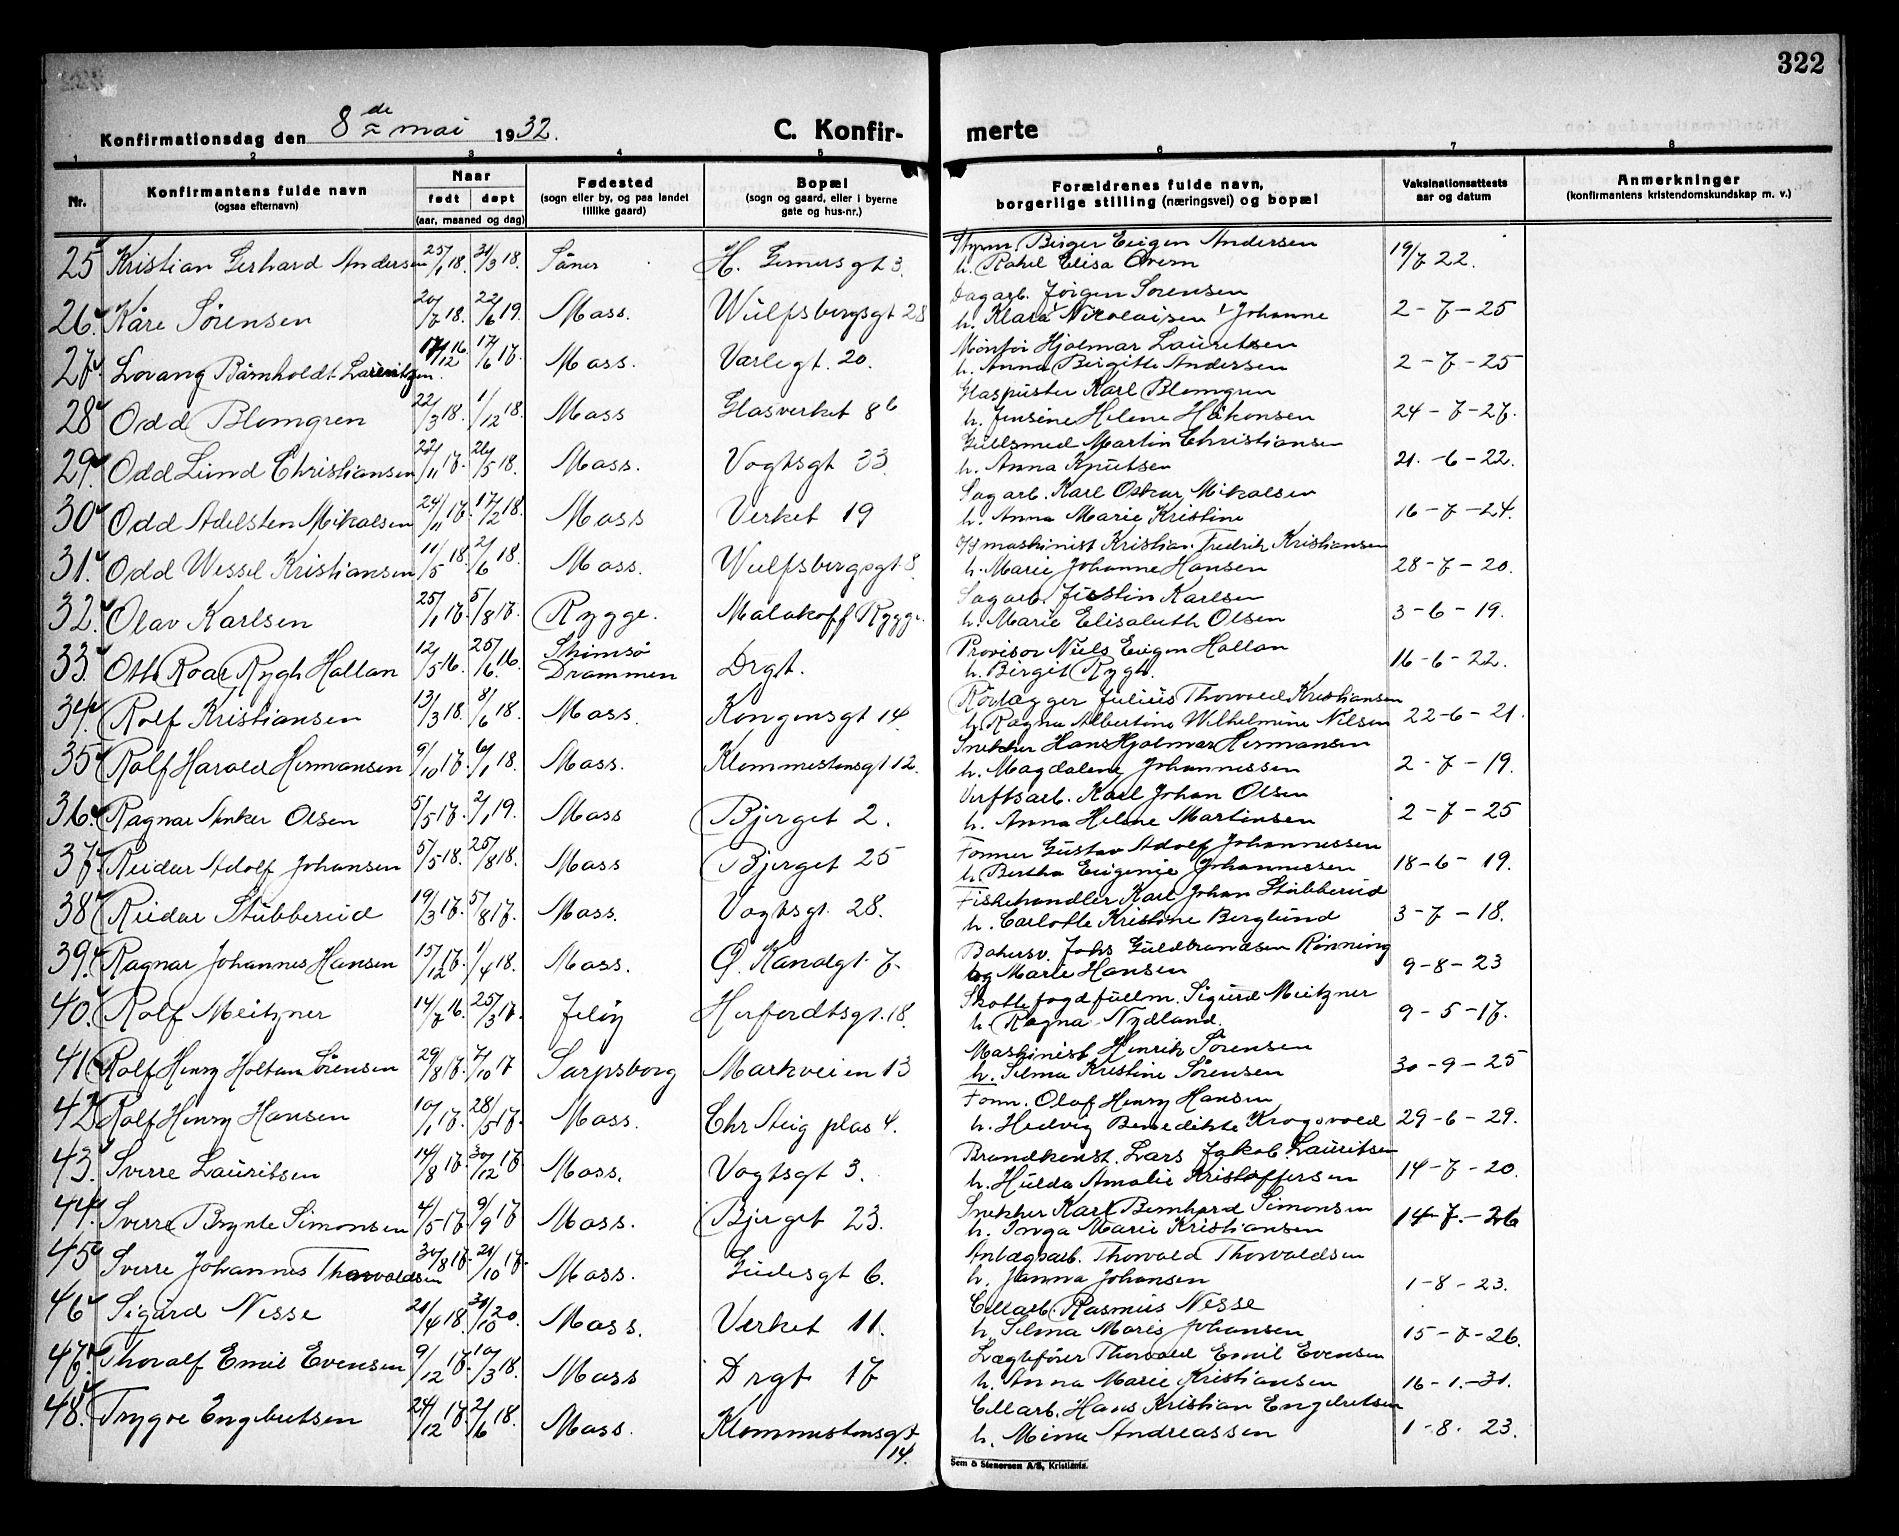 322
Konfirmationsdag den 8de mai 1932.
C. Konfirmerte
1 2 3 4 5 6 7 8
Nr. Konfirmantens fulde navn (ogsaa efternavn) Naar født døpt (aar, maaned og dag) Fødested (sogn eller by, og paa landet tillike gaard) Bopæl (sogn og gaard, eller i byerne gate og hus-nr.) Forældrenes fulde navn, borgerlige stilling (næringsvei) og bopæl Vaksinationsattests aar og datum Anmerkninger (konfirmantens kristendomskundskap m. v.)
25 Kristian Gerhard Andersen 25/1 18. 31/3 18. Såner H. Gernersgt 3. Styrm. Birger Eugen Andersen
h. Rakel Elisa Overn 19/7 22.
26. Kåre Sørensen 20/7 18. 22/6 19. Moss. Wulfsbergsgt 28 Dagarb. Jørgen Sørensen
h. Klara Nicolaisen Johanne 2-7-25
27. Lovang Barnholdt Lauritzen. 17/12 16 17/6 17. Moss. Varlegt. 20. Hjalmar Lauretsen
h. Anna Birgitte Andersen 2-7-25
28 Odd Blomgren 22/3 18. 1/12 18. Moss Glasverket 8b Glaspuster Karl Blomgren
h. Jensine Helene Håkonsen 24-7-27.
29. Odd Lund Christiansen 22/11 17. 26/5 18. Moss. Vogtsgt 33. Gullsmed Martin Christiansen
h. Anna Knutsen 21.-6-22.
30. Odd Adelsten Mikalsen 24/11 17. 17/2 18. Moss Verket 19 Sagarb. Karl Oskar Mikalsen
h. Anna Marie Kristine 16-7-24.
31. Odd Wessel Kristiansen 11/5 18. 2/6 18. Moss. Wulfsbergsgt. 8. maskinist Kristian Fredrik Kristiansen
h. Marie Johanne Hansen 28-7-20.
32. Olav Karlsen 25/1 17. 5/8 17. Rygge. Malakoff Rygge. Sagarb. Karlsen
h. Marie Elisabeth Olsen 3-6-19.
33. Otto Roar Rygh Hallan 12/5 16. 25/6 16. Strømsø
Drammen Drgt. Provisor Niels Eugen Hallan
h. Birgit Rygh. 16-6-22.
34. Rolf Kristiansen 13/3 18. 8/6 18. Moss. Kongensgt 14. Rørlægger Julius Thorvald Kristiansen
h. Ragna Albertine Wilhelmine Nilsen 22-6-21.
35 Rolf Harald Hermansen 9/10 17. 6/1 18. Moss. Klommestensgt 12. Snekker Hans Hjalmar Hermansen
h. Magdalene Johannessen 2-7-19.
36. Ragnar Anker Olsen 5/5 17. 2/1 19. Moss Bjerget 2. Verftsarb. Karl Johan Olsen
h. Anna Helene Martinsen 2-7-25
37. Reidar Adolf Johansen 5/5 18. 25/8 18. Moss Bjerget 25 Former Gustav Adolf Johannessen
h. Bertha Eugenie Johannessen 18-6-19.
38 Reidar Stubberud 19/3 17. 5/8 17. Moss. Vogtsgt. 28. Fiskehandler Karl Johan Stubberud
h. Carlotte Kristine Berglund 3-7-18.
39. Ragnar Johannes Hansen 15/12 17. 1/4 18. Moss. Ø. Kanalgt. 7. Bakersv. Johs Guldbrandsen Rønning
og Marie Hansen 9-8-23
40. Rolf Meitzner 14/7 16. 25/3 17. Jeløy Herfordtsgt. 18. Skattefogdfullm. Sigurd Meitzner
h. Ragna Nydland. 9-5-17.
41 Rolf Henry Holtan Sørensen 29/8 17. 7/10 17 Sarpsborg Markveien 13 Maskinist Henrik Sørensen
h. Selma Kristine Sørensen 30-9-25
42 Rolf Henry Hansen 10/1 17. 28/5 17. Moss. Chr Aug plas 4. Form. Olaf Henry Hansen
h. Hedvig Benedikte Krogsvold 29-6-29.
43. Sverre Lauritsen 14/8 17. 30/12 17 Moss. Vogtsgt 3. Brandkonst. Lars Jakob Lauritsen
h. Hulda Amalie Kristoffersen 14-7-20.
44. Sverre Brynle Simonsen 4/5 17. 9/9 17 Moss. Bjerget 23. Snekker Karl Bernhard Simonsen
h. Inga Marie Kristiansen 14-7.-26
45 Sverre Johannes Thorvaldsen 30/8 17. 21/10 17. Moss. Gudesgt 6. Anlægsarb. Thorvald Thorvaldsen
h. Janna Johansen 1-8-23.
46 Sigurd Nesse 21/4 18. 31/10 20. Moss. Verket 11. Cellarb. Rasmus Nesse
h. Selma Marie Johansen 15-7-26.
47. Thoralf Emil Evensen 9/12 17. 10/3 18. Moss Drgt 17 Lægtefører Thorvald Emil Evensen
h. Anna Marie Kristiansen 16-1.-31.
48. Trygve Engebretsen 24/12 17. 2/6 18. Moss. Klommestensgt
14. Cellarb. Hans Kristian Engebretsen
h. Mina Andreassen 1-8.23.
Sem & Stenersen A/S, Kristiania.